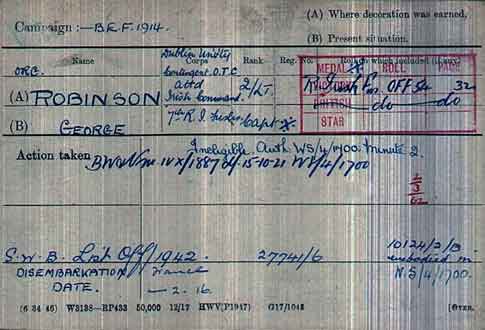 (A) Where decoration was earned.
Campaign :— B.E.F. 1914.
(B) Present situation.
Name Corps Rank Reg. No. Roll on which included (if any)
Dublin Univ^ty
Contingent O.T.C
MEDAL ROLL PAGE
attd 2/Lt. R. Irish Fus OFF 54 32
(A) ROBINSON Irish Command.
BRITISH do do
(B) GEORGE 7th R. I. Fusiliers Capt STAR
Ineligible Auth. WS/4/1700 Minute 2.
Action taken 15-10-21 WS/4/1700
S.W.B. List Off/1942. 27741/6 10124/2/B
DISEMBARKATION France embodied in
DATE. — 2. 16. N.S/4/1700.
(6 34 46) W3138—RP433 50,000 12/17 HWV(P1947) G17/1048 [OVER.